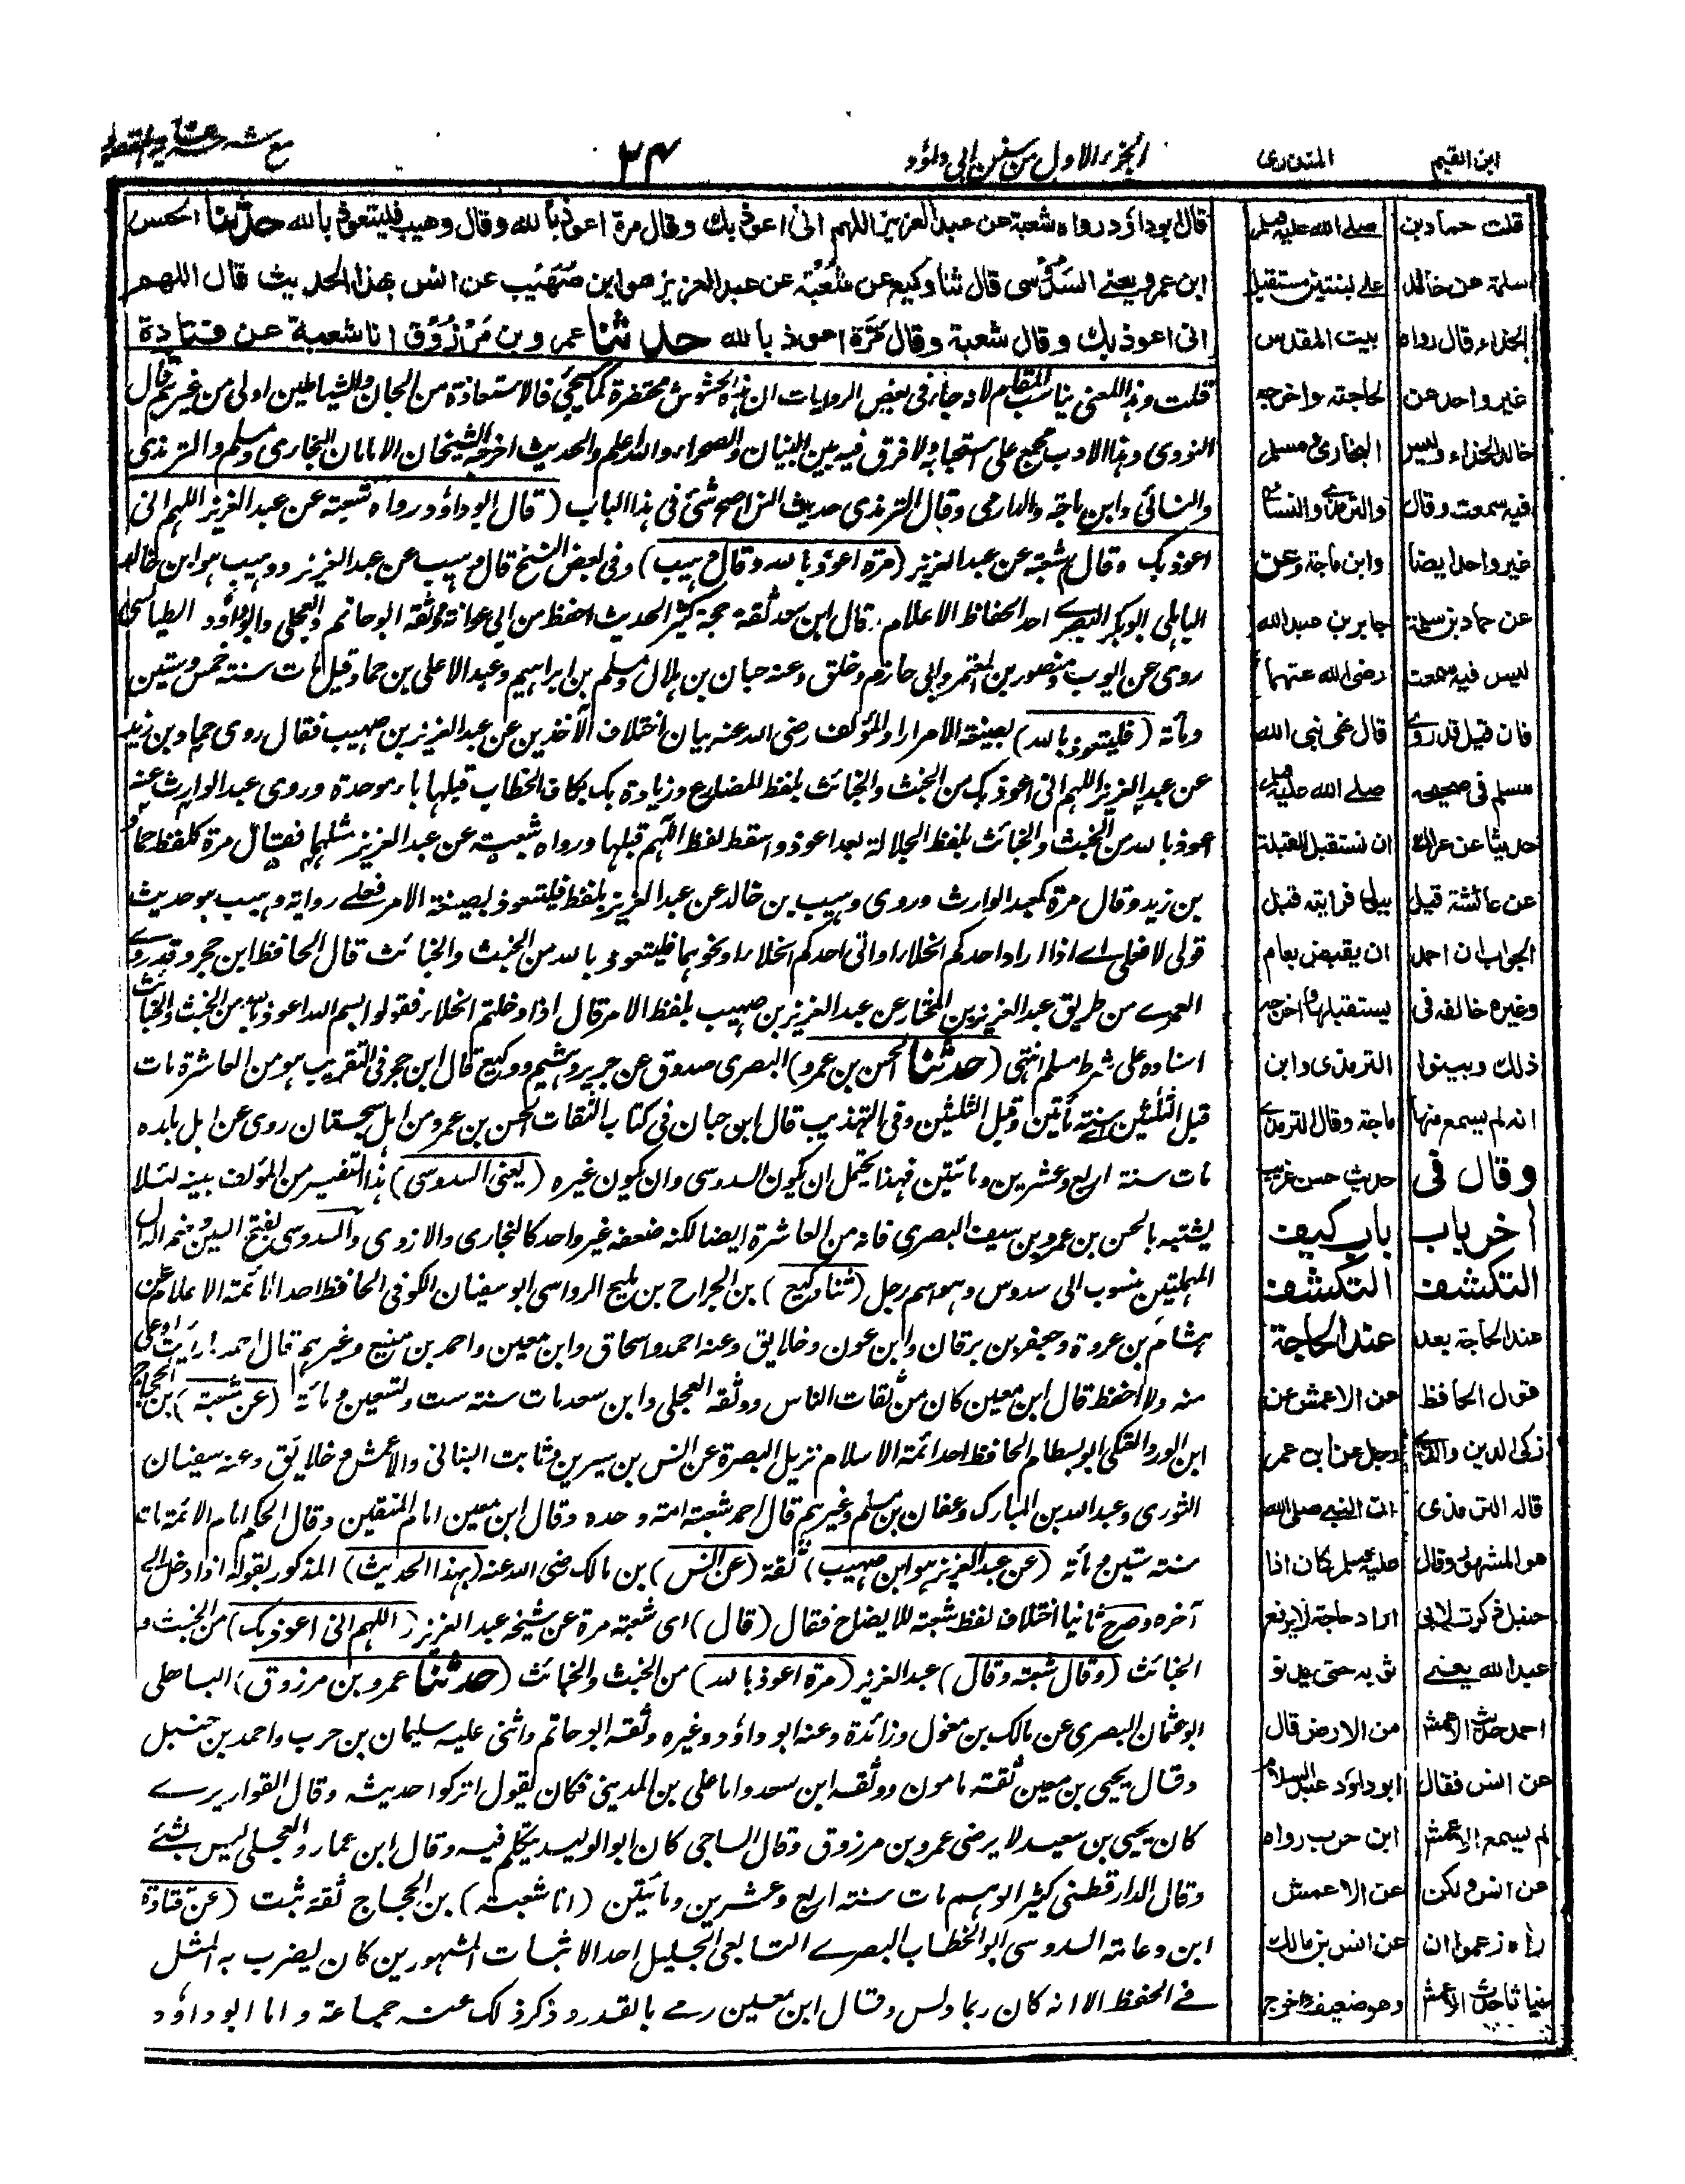 ابن القيم
المنذرى
الجزء الاول من سنن ابى داؤد
٣٤
مع شرحه غاية المقصود
قال ابوداؤد رواه شعبة عن عبد العزيز اللهم انى اعوذ بك وقال مرة اعوذ بالله وقال وهيب فليتعوذ بالله حدثنا الحسن
ابن عمرو يعنى السَّدُوْسى قال ثنا وكيع عن شُعْبَة عن عبد العزيز هو ابن صُهَيْب عن انس بهذا الحديث قال اللهم
انى اعوذ بك وقال شعبة وقال مَرَّة اعوذ بالله حدثنا عمرو بن مَرْزُوْق انا شعبة عن قتادة
قلت وهذا المعنى يناسب المقام لانه جاء فى بعض الروايات ان هذه الحشوش محتضرة كما سيجئ فالاستعاذة من الجان والشياطين اولى من غيرهم قال
النووى وهذا الادب مجمع على استحبابه ولا فرق فيه بين البنيان والصحراء والله اعلم والحديث اخرجه الشيخان الامامان البخارى ومسلم والترمذى
والنسائى وابن ماجة والدارمى وقال الترمذى حديث انس اصح شئ فى هذا الباب (قال ابوداؤد رواه شعبة عن عبد العزيز اللهم انى
اعوذ بك وقال) شعبة عن عبد العزيز (مرة اعوذ بالله وقال وهيب) وفى بعض النسخ قال وهيب عن عبد العزيز ووهيب هو ابن خالد
الباهلى ابو بكر البصرى احد الحفاظ الاعلام قال ابن سعد ثقة حجة كثير الحديث احفظ من ابى عوانة وثقه ابو حاتم والعجلى وابوداؤد الطيالسى
روى عن ايوب ومنصور بن المعتمر وابى حازم وخلق وعنه حبان بن هلال ومسلم بن ابراهيم وعبد الاعلى بن حماد قيل مات سنة خمس وستين
ومأة (فليتعوذ بالله) بصيغة الامر اراد المؤلف رضى الله عنه بيان اختلاف الآخذين عن عبد العزيز بن صهيب فقال روى حماد بن زيد
عن عبد العزيز اللهم انى اعوذ بك من الخبث والخبائث بلفظ المضارع وزيادة بك بكاف الخطاب قبلها باء موحدة وروى عبد الوارث عنه
اعوذ بالله من الخبث والخبائث بلفظ الجلالة بعد اعوذ واسقط لفظ اللّهم قبلها ورواه شعبة عن عبد العزيز مثلهما فقال مرة كلفظ حماد
بن زيد وقال مرة كعبد الوارث وروى وهيب بن خالد عن عبد العزيز بلفظ فليتعوذ بصيغة الامر فعلى رواية وهيب هو حديث
قولى لا فعلى اى اذا اراد احدكم الخلاء او اتى احدكم الخلاء او نحوهما فليتعوذ بالله من الخبث والخبائث قال الحافظ ابن حجر وقد روى
العمرى من طريق عبد العزيز بن المختار عن عبد العزيز بن صهيب بلفظ الامر قال اذا دخلتم الخلاء فقولوا بسم الله اعوذ بالله من الخبث والخبائث
اسناده على شرط مسلم انتهى (حدثنا الحسن بن عمرو) البصرى صدوق عن جرير وهشيم ووكيع قال ابن حجر فى التقريب هو من العاشرة مات
قبل الثلثين اى سنة مأتين وقبل الثلثين وفى التهذيب قال ابن حبان فى كتاب الثقات الحسن بن عمرو من اهل سجستان روى عن اهل بلده
مات سنة اربع وعشرين ومائتين فهذا يحتمل ان يكون السدوسى وان يكون غيره (يعنى السدوسى) هذا التفسير من المؤلف بينه لئلا
يشتبه بالحسن بن عمرو بن سيف البصرى فانه من العاشرة ايضا لكنه ضعفه غير واحد كالبخارى والازدى والسدوسى بفتح السين وضم الدال
المهملتين منسوب الى سدوس وهو اسم رجل (ثنا وكيع) بن الجراح بن مليح الرواسى ابو سفيان الكوفى الحافظ احد الائمة الاعلام عن
هشام بن عروة وجعفر بن برقان وابن عون وخلايق وعنه احمد واسحاق وابن معين واحمد بن منيع وغيرهم قال احمد ما رايت اوعى
منه ولا احفظ قال ابن معين كان من ثقات الناس ووثقه العجلى وابن سعد مات سنة ست وتسعين ومائة (عن شعبة) بن الحجاج
ابن الورد العتكى ابو بسطام الحافظ احد ائمة الاسلام نزيل البصرة عن انس بن سيرين وثابت البنانى والاعمش وخلايق وعنه سفيان
الثورى وعبد الله بن المبارك وعفان بن مسلم وغيرهم قال احمد شعبة امة وحده وقال ابن معين امام المتقين وقال الحاكم امام الائمة مات
سنة ستين ومأة (عن عبد العزيز هو ابن صهيب) ثقة (عن انس) بن مالك رضى الله عنه (بهذا الحديث) المذكور بقوله اذا دخل الى
آخره وصرح ثانيا اختلاف لفظ شعبة للايضاح فقال (قال) اى شعبة مرة عن شيخه عبد العزيز (اللهم انى اعوذ بك) من الخبث و
الخبائث (وقال شعبة وقال) عبد العزيز (مرة اعوذ بالله) من الخبث والخبائث (حدثنا عمرو بن مرزوق) الباهلى
ابو عثمان البصرى عن مالك بن مغول وزائدة وعنه ابو داؤد وغيره وثقه ابو حاتم واثنى عليه سليمان بن حرب واحمد بن حنبل
وقال يحيى بن معين ثقة مامون ووثقه ابن سعد واما على بن المدينى فكان يقول اتركوا حديثه وقال القواريرى
كان يحيى بن سعيد لا يرضى عمرو بن مرزوق وقال الساجى كان ابو الوليد يتكلم فيه وقال ابن عمار والعجلى ليس بشئ
وقال الدارقطنى كثير الوهم مات سنة اربع وعشرين ومائتين (انا شعبة) بن الحجاج ثقة ثبت (عن قتادة
ابن دعامة السدوسى ابو الخطاب البصرى التابعى الجليل احد الاثبات المشهورين كان يضرب به المثل
فى الحفظ الا انه كان ربما دلس وقال ابن معين رمى بالقدر وذكر ذلك عنه جماعة واما ابوداؤد
صلى الله عليه وسلم
على لبنتين مستقبل
بيت المقدس
لحاجته واخرجه
البخارى ومسلم
والترمذى والنسائى
وابن ماجة وعن
جابر بن عبد الله
رضى الله عنهما
قال نهى نبى الله
صلى الله عليه وسلم
ان نستقبل القبلة
ببول فرايته قبل
ان يقبض بعام
يستقبلها واخرجه
الترمذى وابن
ماجة وقال الترمذى
حديث حسن غريب
باب كيف
التكشف
عند الحاجة
عن الاعمش عن
رجل عن ابن عمر
ان النبى صلى الله
عليه وسلم كان اذا
اراد حاجة لا يرفع
ثوبه حتى يدنو
من الارض قال
ابوداؤد عبد السلام
ابن حرب رواه
عن الاعمش
عن انس بن مالك
وهو ضعيف واخرجه
قلت حماد بن
سلمة عن خالد
الحذاء قال رواه
غير واحد عن
خالد الحذاء وليس
فيه سمعت وقال
غير واحد ايضا
عن حماد بن سلمة
ليس فيه سمعت
فان قيل قد روى
مسلم فى صحيحه
حديثا عن عراك
عن عائشة قيل
الجواب ان احمد
وغيره خالفه فى
ذلك وبينوا
انه لم يسمع منها
وقال فى
آخر باب
التكشف
عند الحاجة بعد
قول الحافظ
زكى الدين والذى
قاله الترمذى
هو المشهور وقال
حنبل ذكرت لابى
عبد الله يعنى
احمد حديث الاعمش
عن انس فقال
لم يسمع الاعمش
عن انس ولكن
راه زعموا ان
غياثا حدث الاعمش